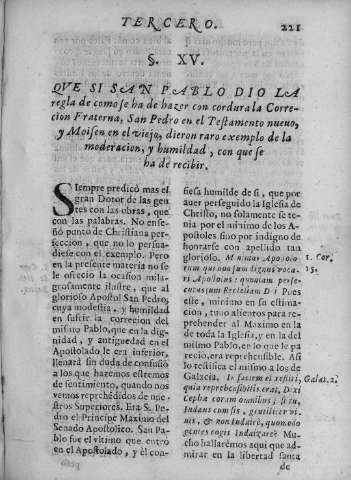 TERCERO. 221
§. XV.
QVE SI SAN PABLO DIO LA
regla de como se ha de hazer con cordura la Corre-
cion Fraterna, San Pedro en el Testamento nueuo,
y Moisen en el viejo, dieron raro exemplo de la
moderacion, y humildad, con que se
ha de recibir.
SIempre predicó mas el
gran Dotor de las gen
tes con las obras, que
con las palabras. No ense
ñó punto de Christiana per-
feccion, que no lo persua-
diese con el exemplo. Pero
en la presente materia no se
le ofrecio la ocasion mila-
grosamente ilustre, que al
glorioso Apostol San Pedro,
cuya modestia, y humildad
en sufrir la correcion del
mismo Pablo, que en la dig-
nidad, y antiguedad en el
Apostolado le era inferior,
llenará sin duda de confusiõ
a los que hazemos estremos
de sentimiento, quando nos
vemos reprehẽdidos de nues
stros Superiores. Era S. Pe-
dro el Principe Maximo del
Senado Apostolico. San Pa-
blo fue el vltimo que entrò
en el Apostolado, y el con-
fiesa humilde de si, que por
auer perseguido la Iglesia de
Christo, no solamente se te-
nia por el minimo de los A-
postoles sino por indigno de
honrarse con apellido tan
glorioso. Minimus Apostolo-
rum qui non sum dignus voca-
ri Apostolus: quoniam perse-
cutus sum Ecclesiam Dei Pues
este, minimo en su estima-
cion, tuuo alientos para re-
prehender al Maximo en la
de toda la Iglesia, y en la del
mismo Pablo, en lo que le pa
recio, era reprehensible. Asi
lo testifica el mismo a los de
Galacia. In faciem ei restiti,
quia reprehensibilis erat. Dixi
Cephæ coram omnibus; si tu
Iudæus cum sis, gentiliter vi-
uis, & non Iudaicè, quomodo
gentes cogis Iudaizare? Mu-
cho hallarèmos aqui que ad-
mirar en la libertad santa
de
1. Cor.
15.
Galat. 2.